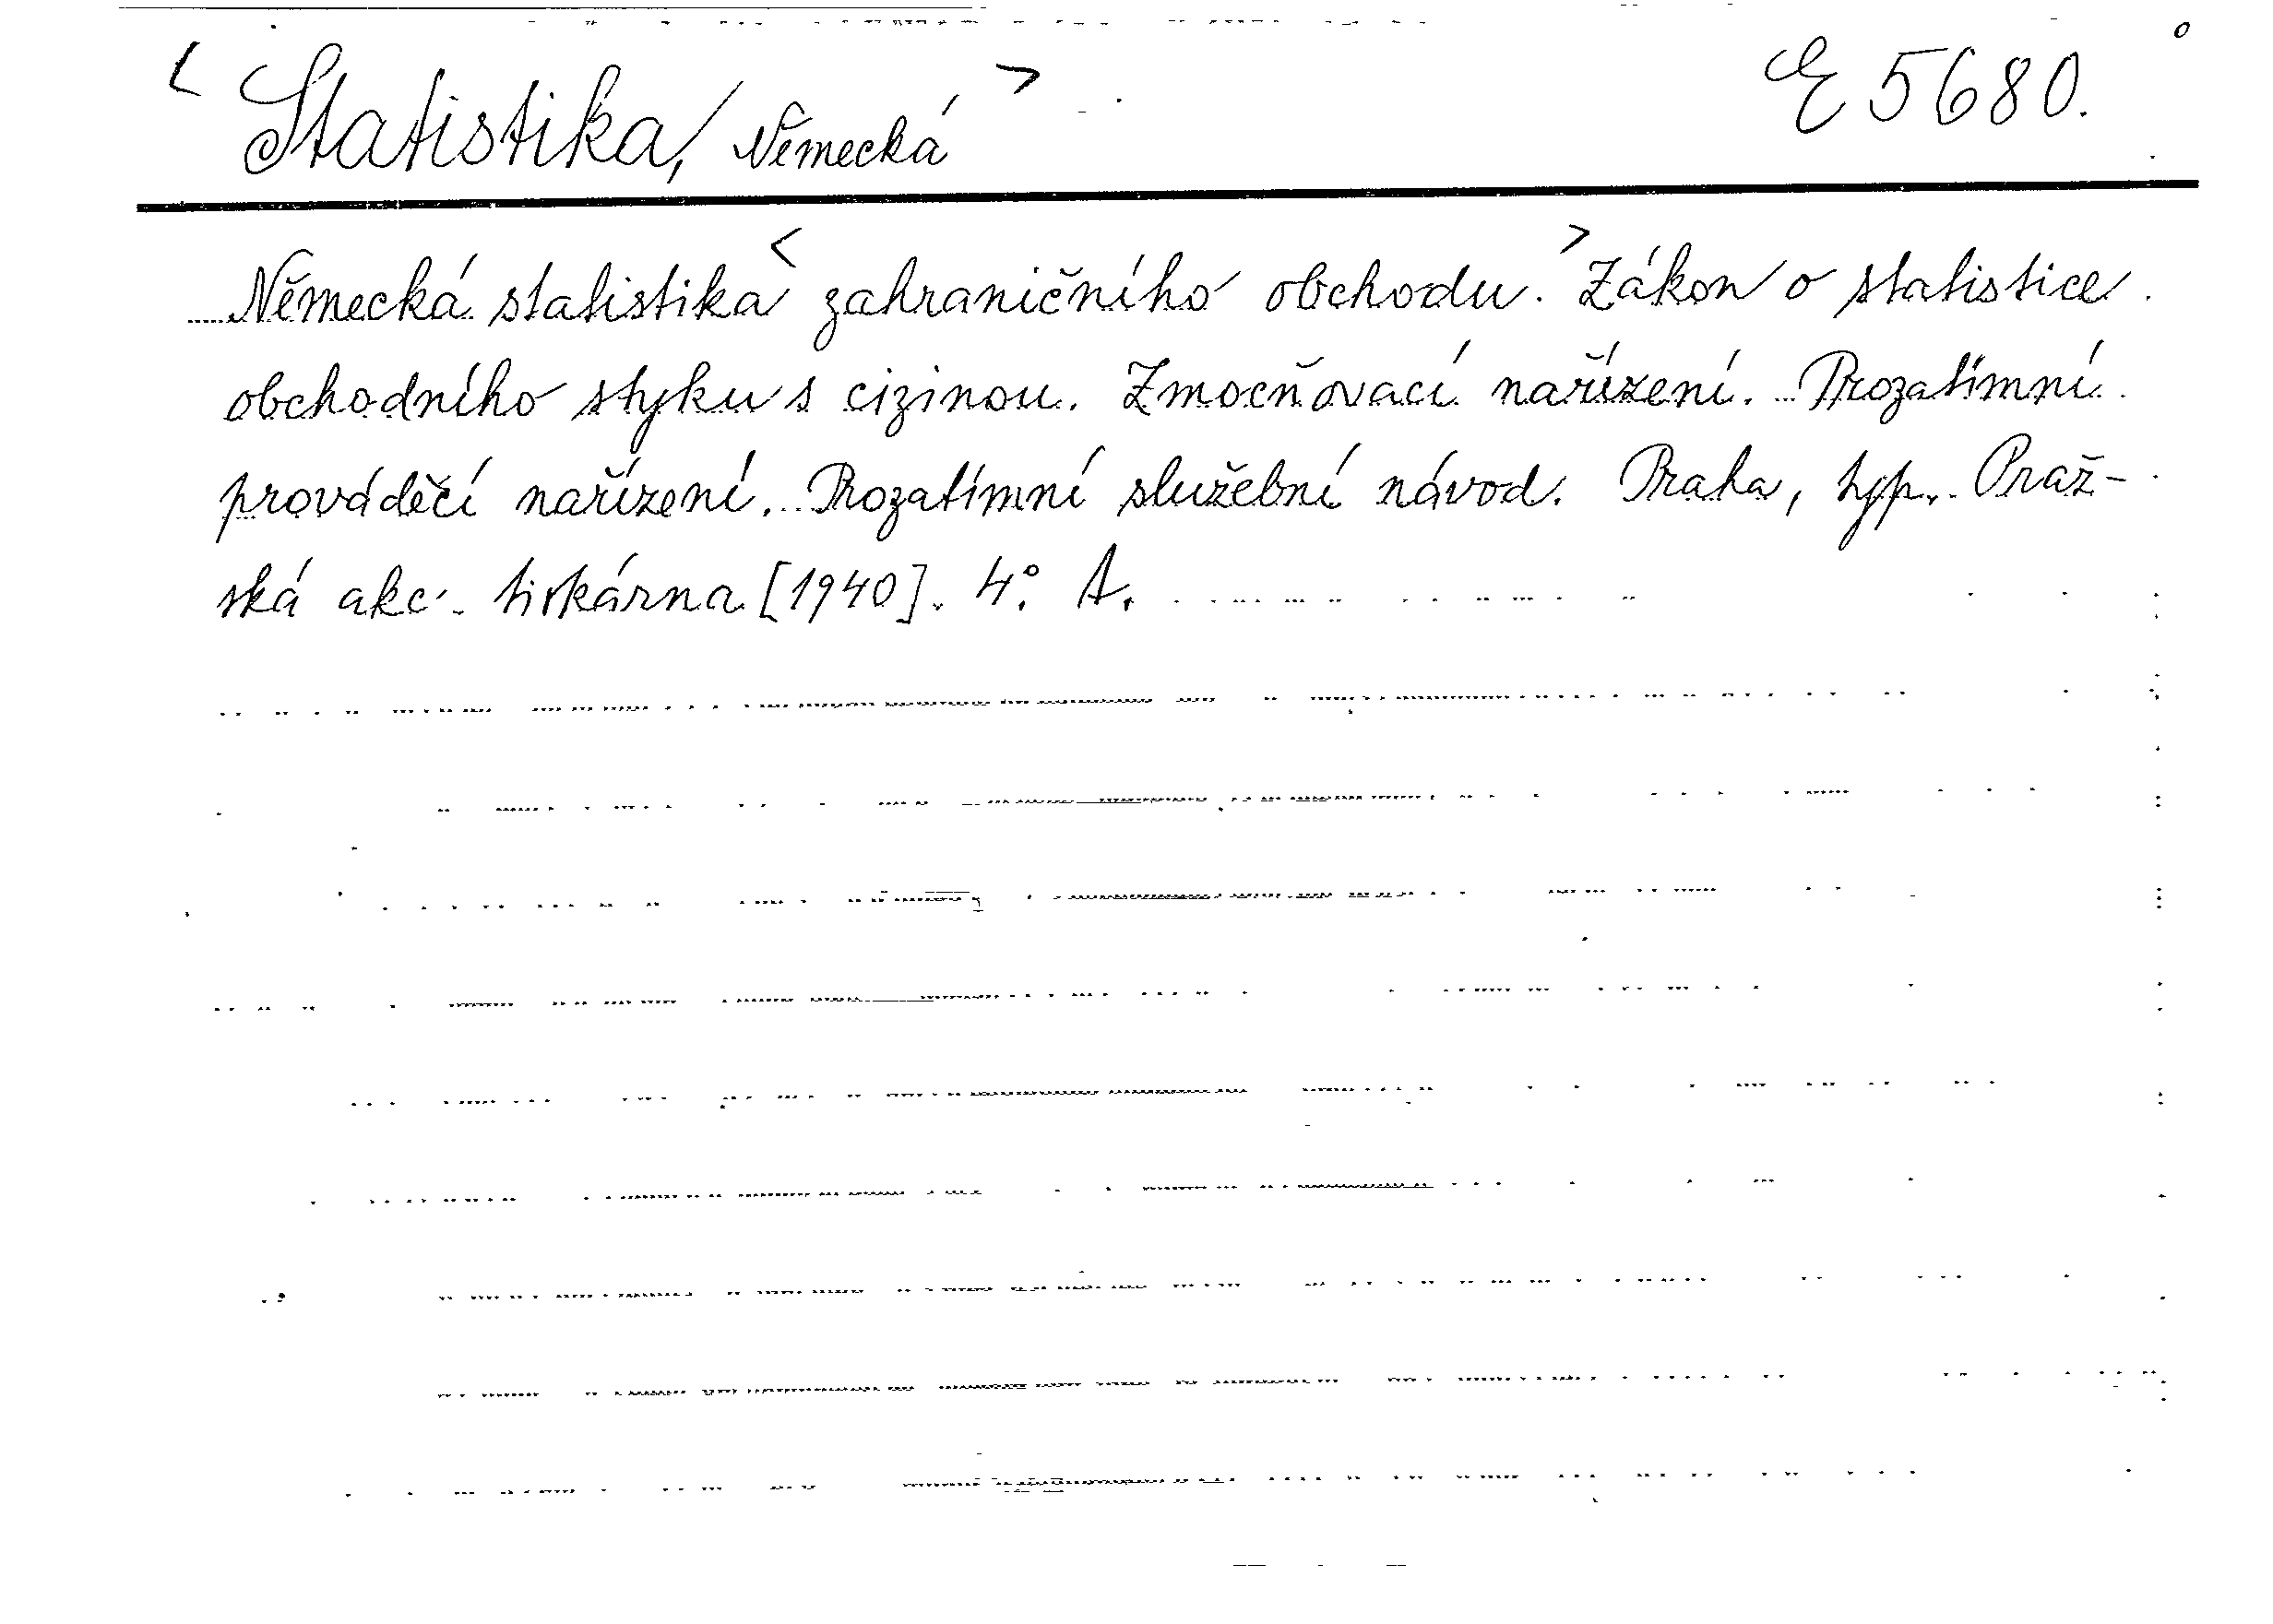 < Statistika, Německá > E 5680.
Německá statistika < zahraničního obchodu. > Zákon o statistice
obchodního styku s cizinou. Zmocňovací nařízení. Prozatímní
prováděčí nařízení. Prozatímní služební návod. Praha, typ. Praž-
ská akc. tiskárna [1940]. 4°. A.